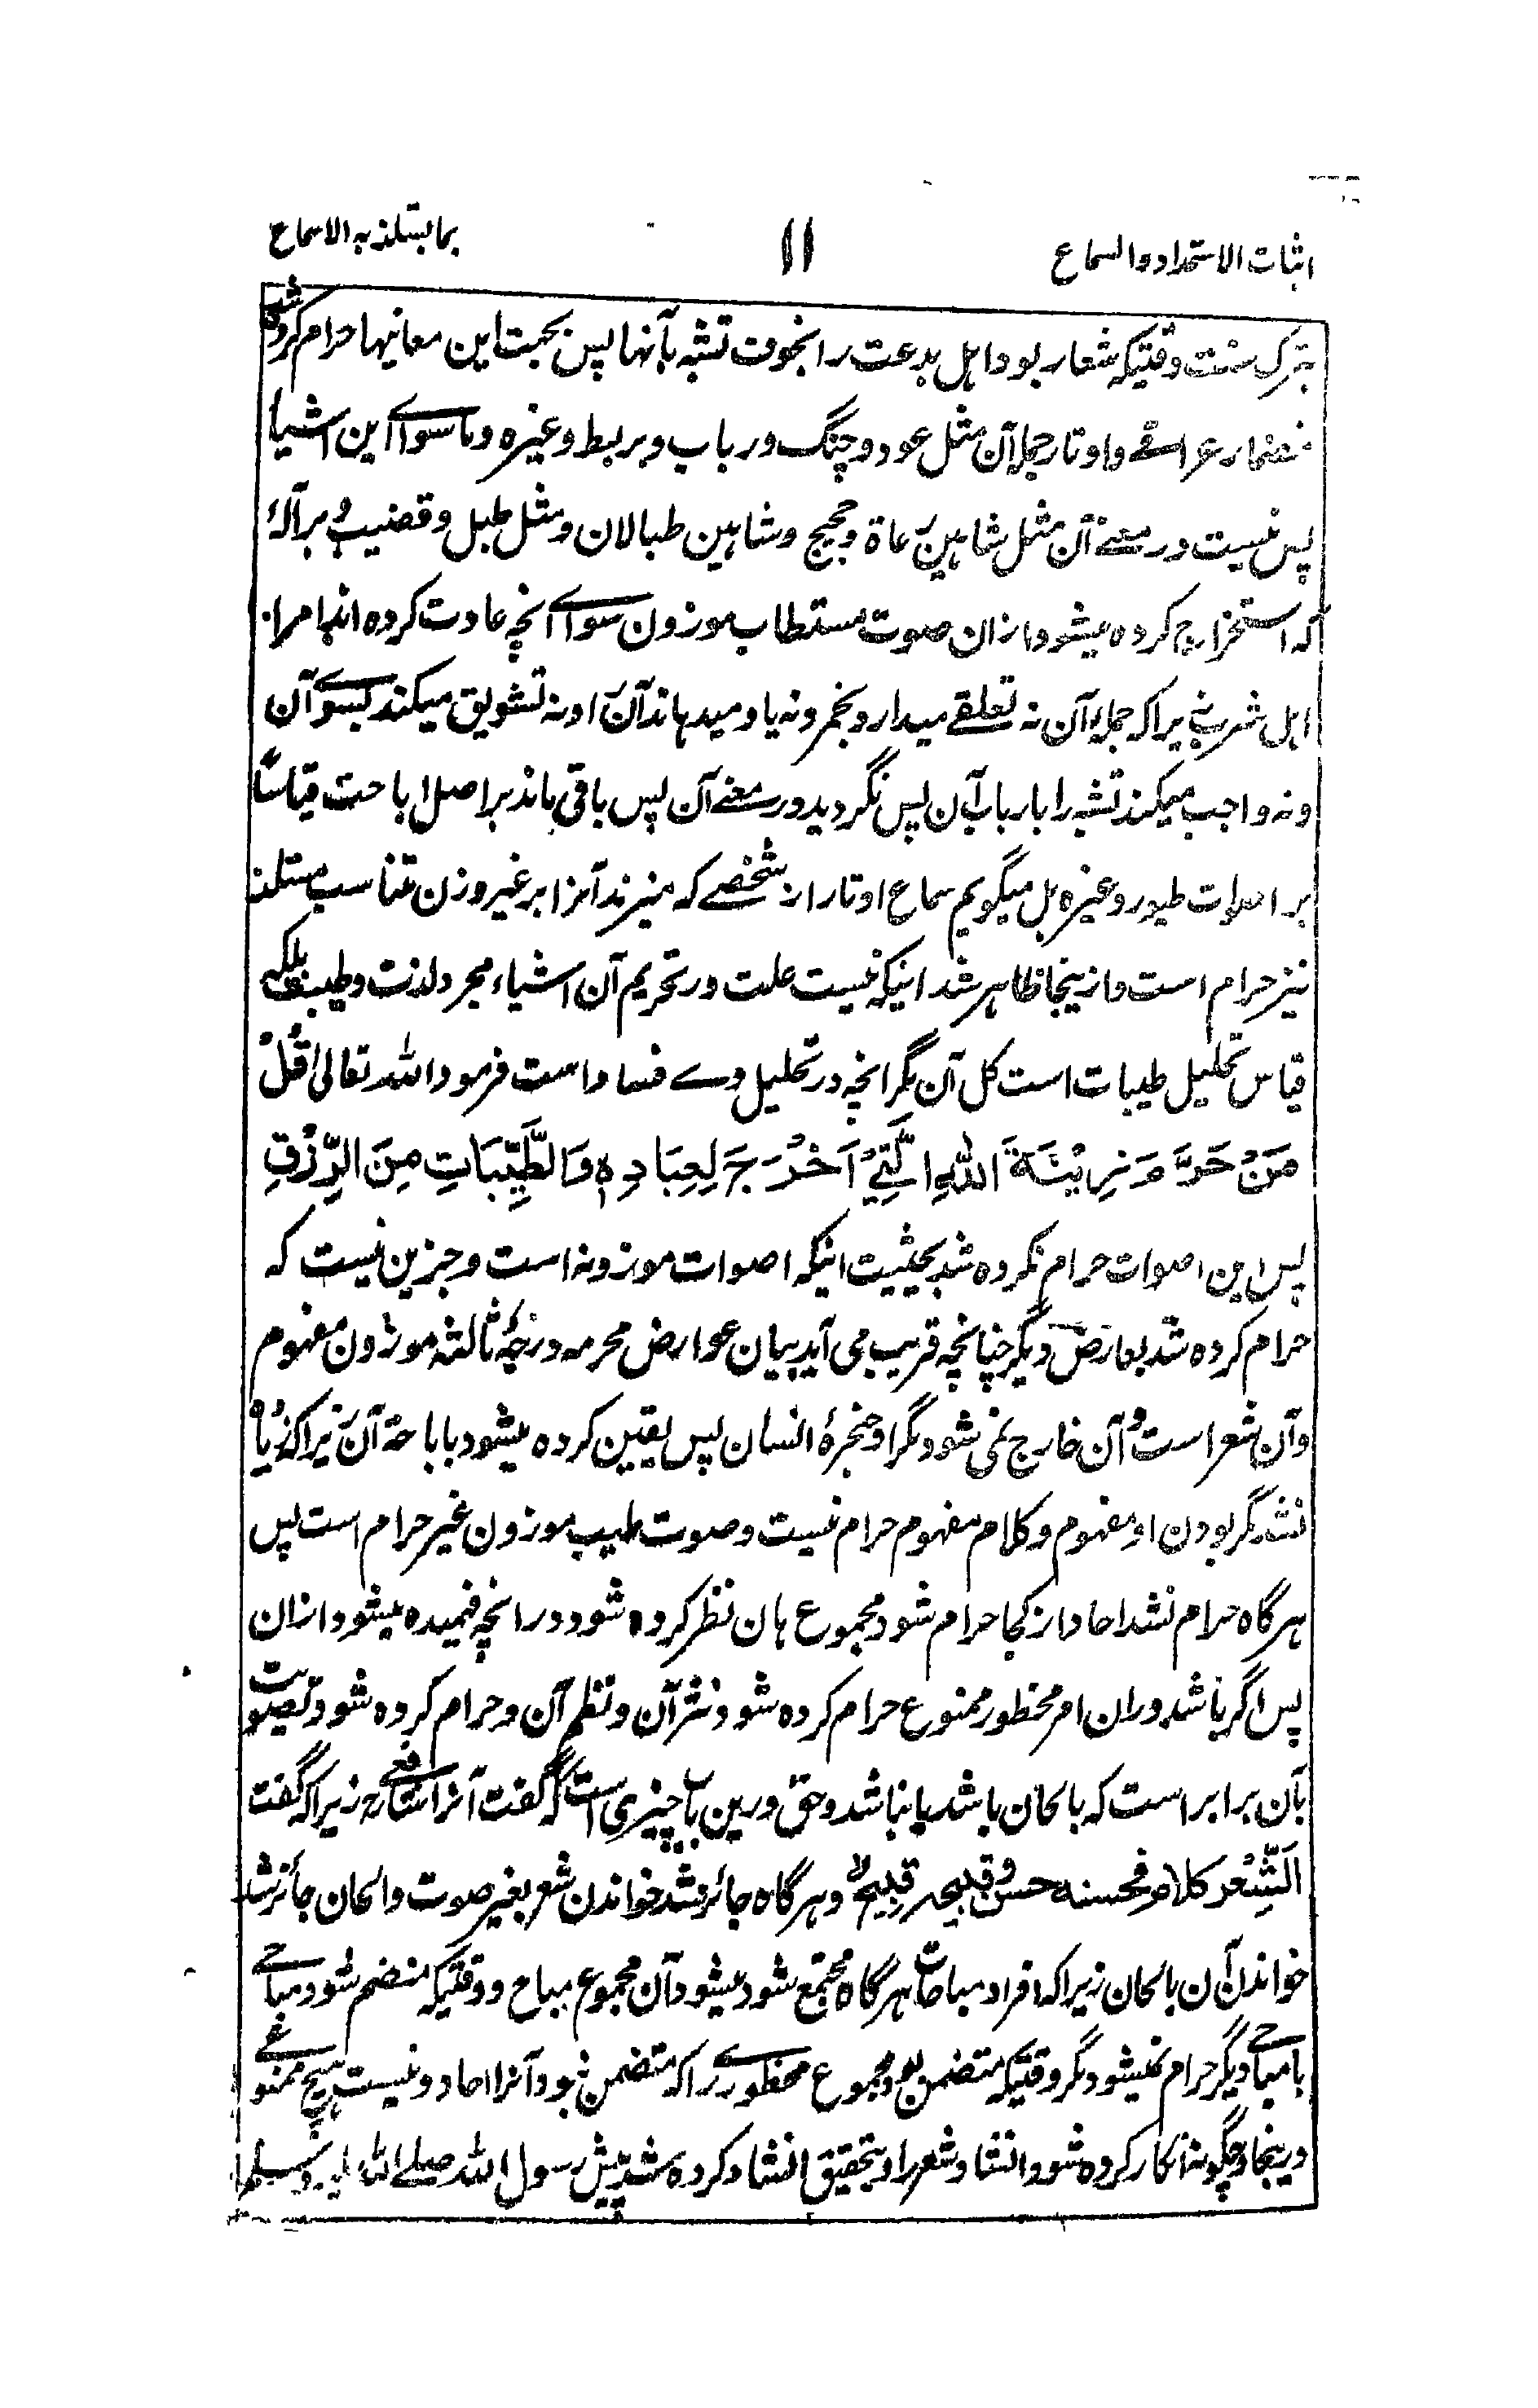 اثبات الاستمداد والسماع ۱۱ بما یستلذ به الاسماع
بترک سنت وقتیکه شعار بود اہل بدعت را بخوف تشبہ بآنہا پس بجہت این معانیہا حرام کرده شد
مزمار عراقے و اوتار جملہ آن مثل عود و چنگ و رباب و بربط و غیره و ماسواے این اشیا
پس نیست در معنے آن مثل شاہین رعاة و حجیج و شاہین طبالان و مثل طبل و قضیب و ہر آلۂ
کہ استخراج کرده میشود ازان صوت مستطاب موزون سواے آنچہ عادت کرده اند آنرا
اہل شرب زیراکہ جملہ آن نہ تعلقے میدارد بخمر و نہ یاد میدہاند آنرا و نہ تشویق میکند بسوے آن
و نہ واجب میکند تشبہ را بارباب آن پس نگردید در معنے آن پس باقی ماند بر اصل اباحت قیاساً
بر اصوات طیور و غیره بل میگویم سماع اوتار از شخصے کہ میزند آنرا بر غیر وزن متناسب مستلذ
نیز حرام است و ازینجا ظاہر شد اینکہ نیست علت در تحریم آن اشیاء مجرد لذت و طیب بلکہ
قیاس تحلیل طیبات است کل آن مگر انچہ در تحلیل وے فساد است فرمود اللہ تعالیٰ قُلْ
مَنْ حَرَّمَ زِیْنَةَ اللّٰهِ الَّتِیْ اَخْرَجَ لِعِبَادِهٖ وَالطَّیِّبَاتِ مِنَ الرِّزْقِ
پس این اصوات حرام نکرده شد بحیثیت اینکہ اصوات موزونہ است و جزین نیست کہ
حرام کرده شد بعارض دیگر چنانچہ قریب می آید بیان عوارض محرمہ درجۂ ثالثہ موزون مفہوم
و آن شعر است و آن خارج نمی شود مگر از حنجرۂ انسان پس یقین کرده میشود باباحة آن زیراکہ زیادہ
نشد مگر بودن او مفہوم و کلام مفہوم حرام نیست و صوت طیب موزون غیر حرام است پس
ہرگاہ حرام نشد احاد از کجا حرام شود مجموع ہان نظر کرده شود در انچہ فہمیده میشود ازان
پس اگر باشد دران امر محظور ممنوع حرام کرده شود نثر آن و نظم آن و حرام کرده شود تصویت
بآن برابر است کہ بالحان باشد یا نباشد و حق درین باب چیزی است کہ گفت آنرا شافعے رح زیراکہ گفت
اَلشِّعْرُ کلام فحسنہ حسن و قبیحہ قبیح و ہرگاہ جائز شد خواندن شعر بغیر صوت و الحان جائز شد
خواندن آن بالحان زیراکہ افراد مباحات ہرگاہ مجتمع شود میشود آن مجموع مباح و وقتیکہ منضم شود مباحے
بامباحے دیگر حرام نمیشود مگر وقتیکہ متضمن بود مجموع محظورے را کہ متضمن نبود آنرا احاد و نیست ہیچ ممنوعے
درینجا و چگونہ انکار کرده شود انشاد شعر را و بتحقیق انشاد کرده شد پیش رسول اللہ صلے اللہ علیہ وسلم